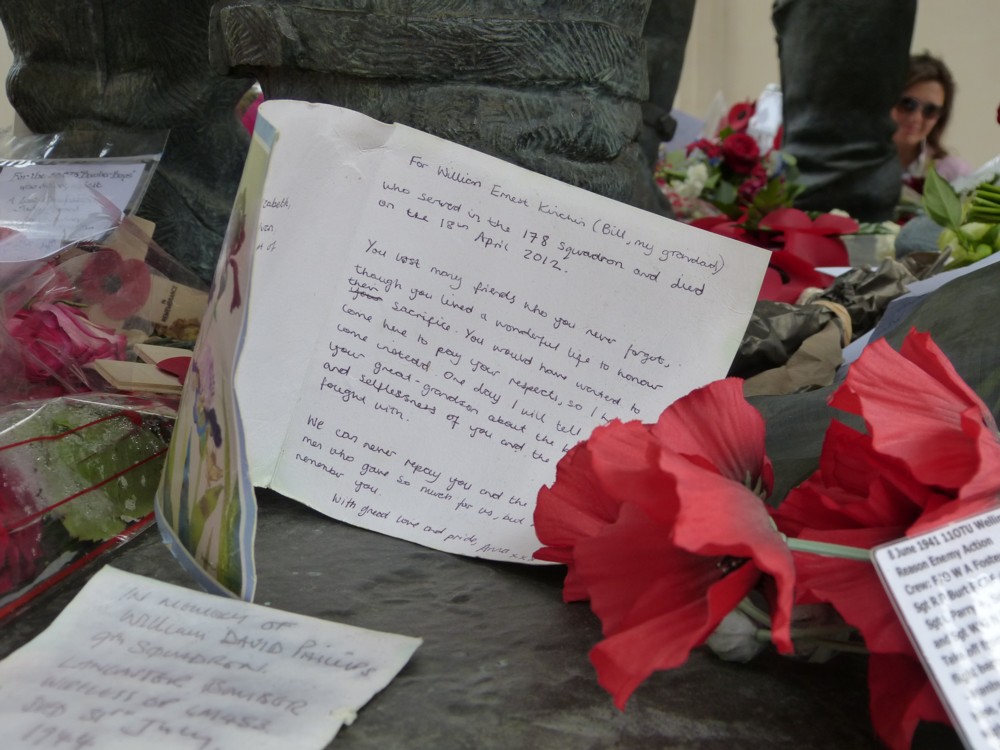 For the "Bomber Boys"
zabeth,
For William Ernest Kirchin (Bill, my grandad)
who served in the 178 squadron and died
on the 18th April 2012.
You lost many friends who you never forgot,
though you lived a wonderful life to honour
their sacrifice. You would have wanted to
come here to pay your respects, so I h
come instead. One day I will tell
your great-grandson about the b
and selflessness of you and the
fought with.
We can never repay you and the
men who gave so much for us, but
remember you.
With great love and pride, Anna x x x
IN MEMORY OF
WILLIAM DAVID PHILLIPS
9th SQUADRON.
LANCASTER BOMBER
WIRELESS OP
31st July
1944
8 June 1941 11OTU Welli
Reason Enemy Action
Crew: F/O W A Foste
Sgt R D Burt
Sgt L Parry
and Sgt W
Take off